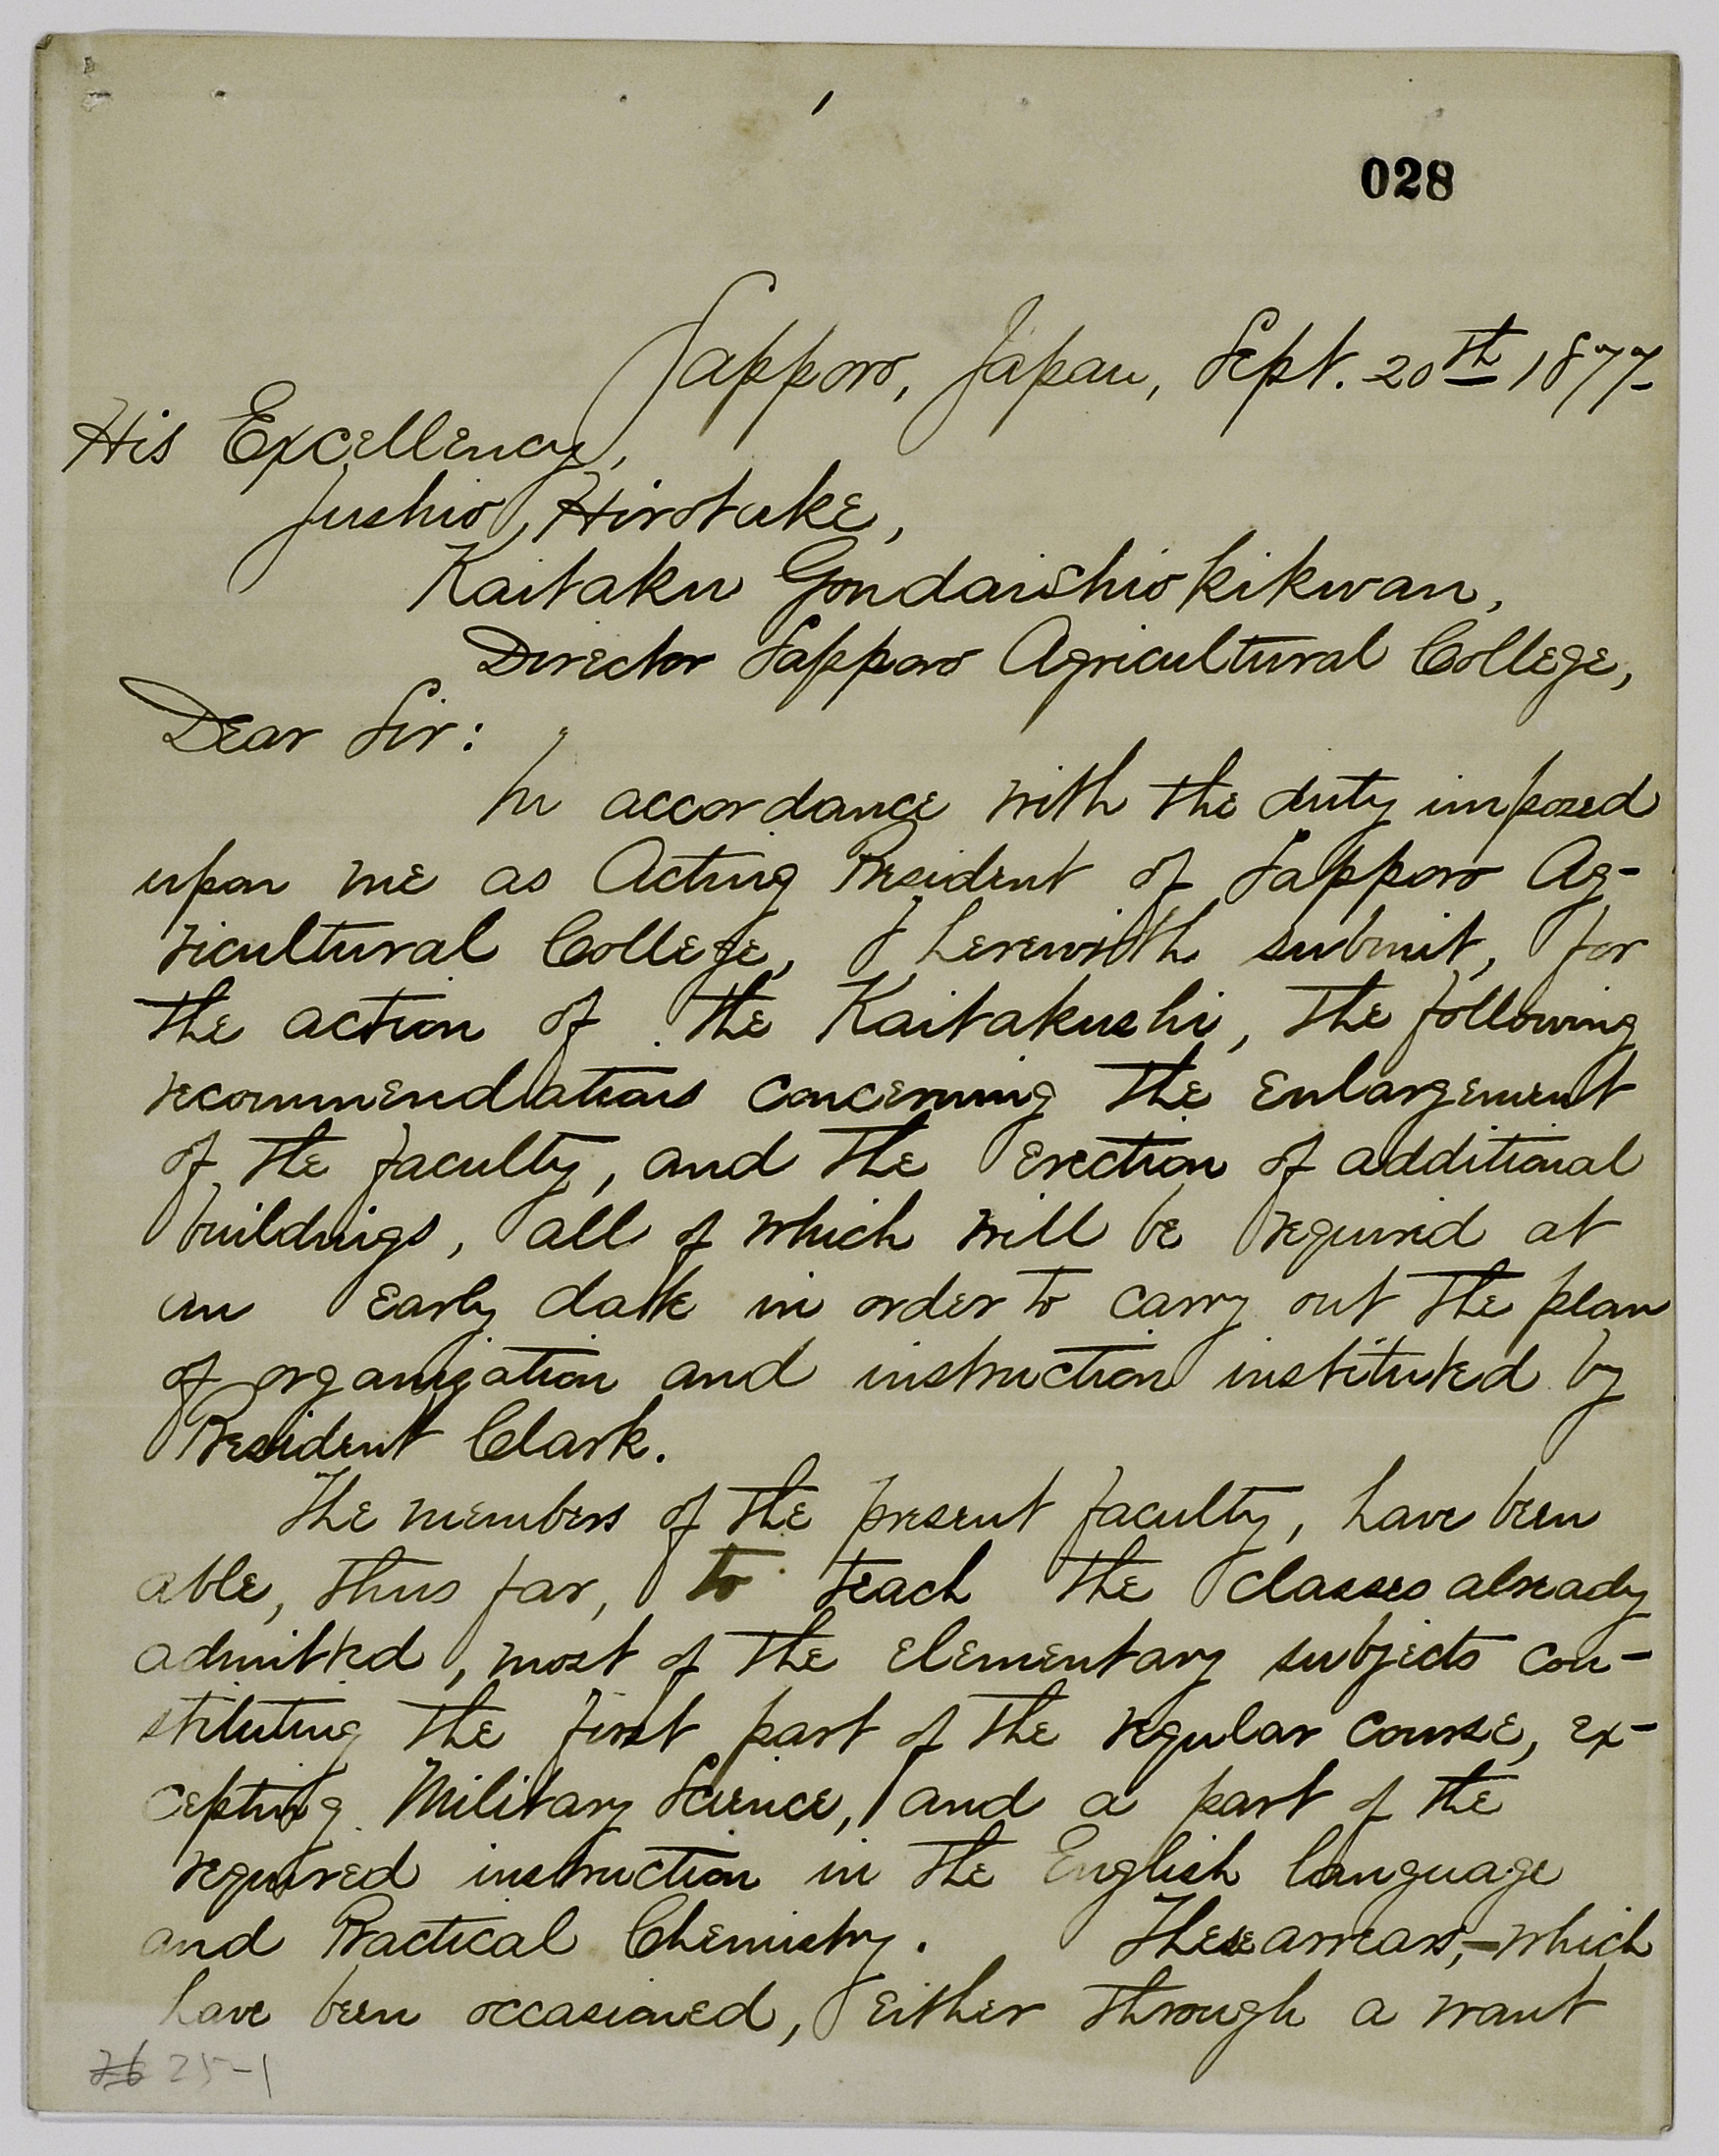 028
Sapporo, Japan, Sept. 20th 1877
His Excellency,
Jushio Hirotake,
Kaitaku Gondaishiokikwan,
Director Sapporo Agricultural College,
Dear Sir:
In accordance with the duty imposed
upon me as Acting President of Sapporo Ag-
ricultural College, I herewith submit, for
the action of the Kaitakushi, the following
recommendations concerning the enlargement
of the faculty, and the erection of additional
buildings, all of which will be required at
an early date in order to carry out the plan
of organization and instruction instituted by
President Clark.
The members of the present faculty, have been
able, thus far, to teach the classes already
admitted, most of the elementary subjects con-
stituting the first part of the regular course, ex-
cepting Military Science, and a part of the
required instruction in the English language
and Practical Chemistry. These arrears,—which
have been occasioned, either through a want
25-1